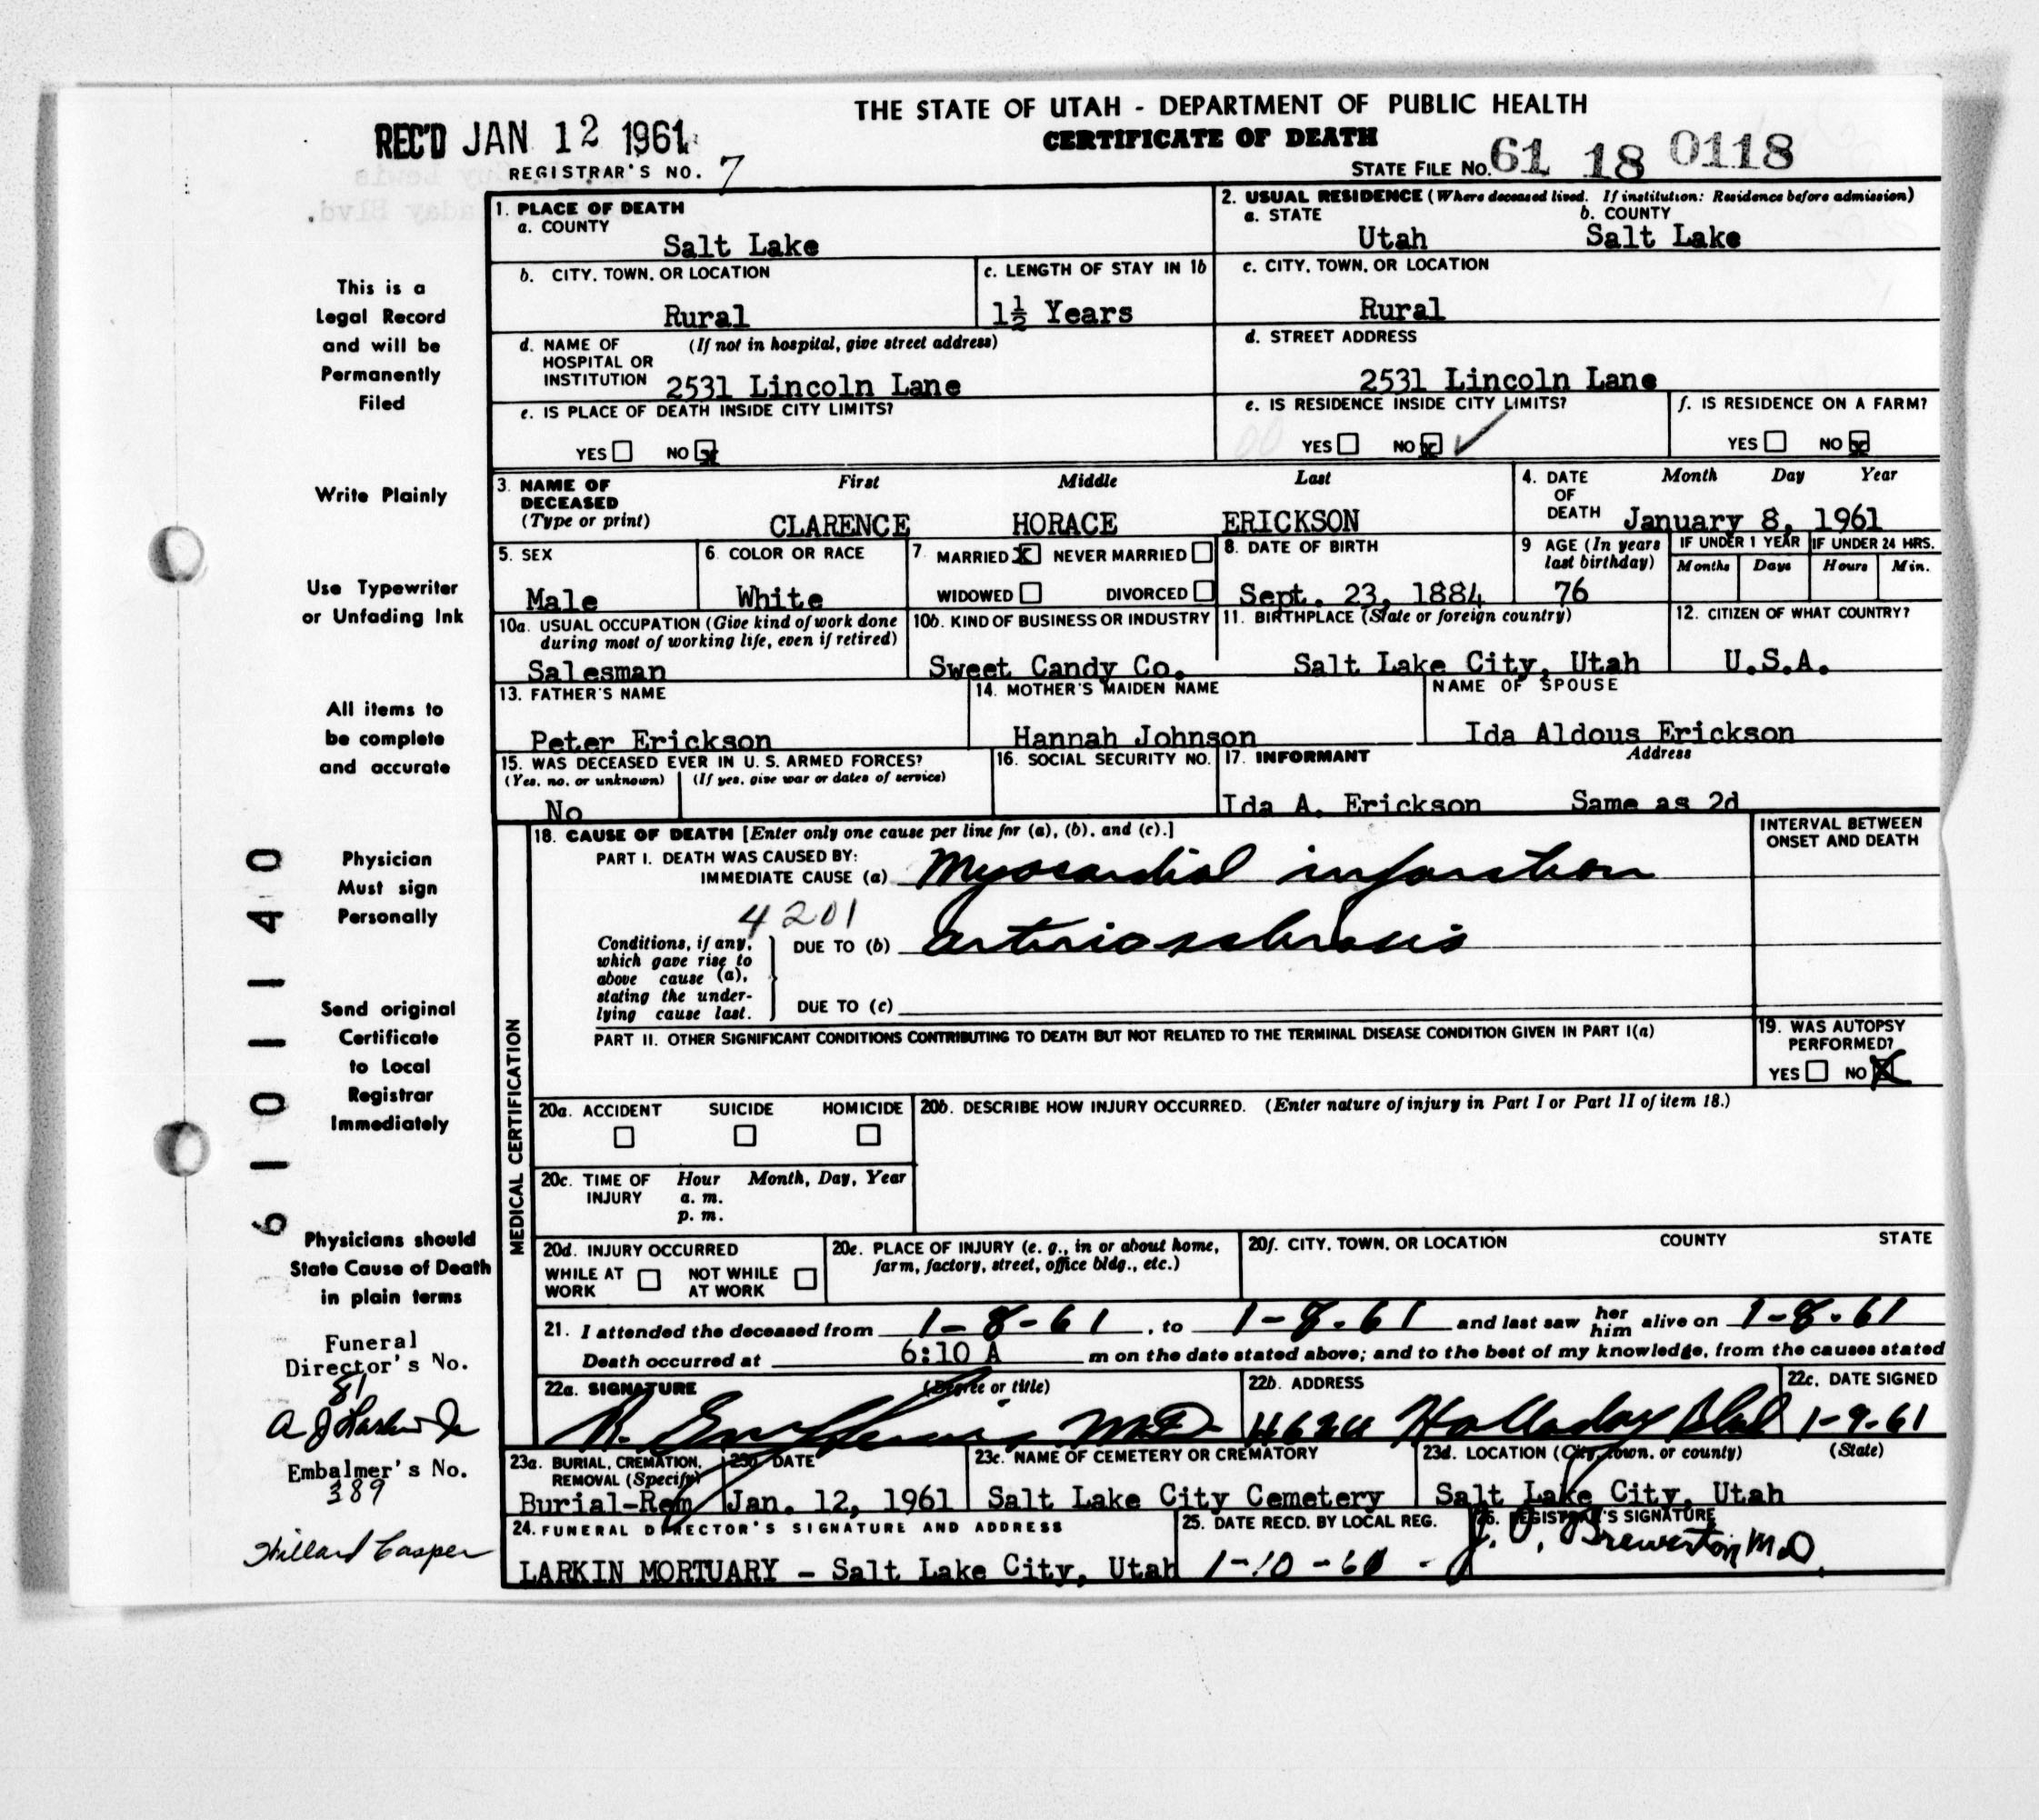 THE STATE OF UTAH - DEPARTMENT OF PUBLIC HEALTH
REC'D JAN 12 1961
CERTIFICATE OF DEATH
REGISTRAR'S NO. 7
STATE FILE NO. 61 18 0118
1. PLACE OF DEATH
a. COUNTY
Salt Lake
2. USUAL RESIDENCE (Where deceased lived. If institution: Residence before admission)
a. STATE b. COUNTY
Utah Salt Lake
b. CITY, TOWN, OR LOCATION
Rural
c. LENGTH OF STAY IN 1b
1½ Years
c. CITY, TOWN, OR LOCATION
Rural
d. NAME OF (If not in hospital, give street address)
HOSPITAL OR
INSTITUTION 2531 Lincoln Lane
d. STREET ADDRESS
2531 Lincoln Lane
e. IS PLACE OF DEATH INSIDE CITY LIMITS?
YES NO x
e. IS RESIDENCE INSIDE CITY LIMITS?
YES NO x
f. IS RESIDENCE ON A FARM?
YES NO x
3. NAME OF First Middle Last
DECEASED
(Type or print) CLARENCE HORACE ERICKSON
4. DATE Month Day Year
OF
DEATH January 8, 1961
5. SEX
Male
6. COLOR OR RACE
White
7. MARRIED x NEVER MARRIED
WIDOWED DIVORCED
8. DATE OF BIRTH
Sept. 23, 1884
9 AGE (In years
last birthday)
76
IF UNDER 1 YEAR IF UNDER 24 HRS.
Months Days Hours Min.
10a. USUAL OCCUPATION (Give kind of work done
during most of working life, even if retired)
Salesman
10b. KIND OF BUSINESS OR INDUSTRY
Sweet Candy Co.
11. BIRTHPLACE (State or foreign country)
Salt Lake City, Utah
12. CITIZEN OF WHAT COUNTRY?
U.S.A.
13. FATHER'S NAME
Peter Erickson
14. MOTHER'S MAIDEN NAME
Hannah Johnson
NAME OF SPOUSE
Ida Aldous Erickson
15. WAS DECEASED EVER IN U. S. ARMED FORCES?
(Yes, no, or unknown) (If yes, give war or dates of service)
No
16. SOCIAL SECURITY NO.
17. INFORMANT Address
Ida A. Erickson Same as 2d
MEDICAL CERTIFICATION
18. CAUSE OF DEATH [Enter only one cause per line for (a), (b), and (c).]
INTERVAL BETWEEN
ONSET AND DEATH
PART I. DEATH WAS CAUSED BY:
IMMEDIATE CAUSE (a) Myocardial infarction
4201
Conditions, if any,
which gave rise to
above cause (a),
stating the under-
lying cause last.
DUE TO (b) arteriosclerosis
DUE TO (c)
PART II. OTHER SIGNIFICANT CONDITIONS CONTRIBUTING TO DEATH BUT NOT RELATED TO THE TERMINAL DISEASE CONDITION GIVEN IN PART I(a)
19. WAS AUTOPSY
PERFORMED?
YES NO X
20a. ACCIDENT SUICIDE HOMICIDE
20b. DESCRIBE HOW INJURY OCCURRED. (Enter nature of injury in Part I or Part II of item 18.)
20c. TIME OF Hour Month, Day, Year
INJURY a. m.
p. m.
20d. INJURY OCCURRED
WHILE AT NOT WHILE
WORK AT WORK
20e. PLACE OF INJURY (e. g., in or about home,
farm, factory, street, office bldg., etc.)
20f. CITY, TOWN, OR LOCATION COUNTY STATE
21. I attended the deceased from 1-8-61, to 1-8-61 and last saw her him alive on 1-8-61
Death occurred at 6:10 A m on the date stated above; and to the best of my knowledge, from the causes stated
22a. SIGNATURE (Degree or title)
R. Guy Lewis M.D.
22b. ADDRESS
Holladay Blvd
22c. DATE SIGNED
1-9-61
23a. BURIAL, CREMATION,
REMOVAL (Specify)
Burial-Rem
23b. DATE
Jan. 12, 1961
23c. NAME OF CEMETERY OR CREMATORY
Salt Lake City Cemetery
23d. LOCATION (City, town, or county) (State)
Salt Lake City, Utah
24. FUNERAL DIRECTOR'S SIGNATURE AND ADDRESS
LARKIN MORTUARY - Salt Lake City, Utah
25. DATE RECD. BY LOCAL REG.
1-10-60
26. REGISTRAR'S SIGNATURE
Brewerton M.D.
This is a
Legal Record
and will be
Permanently
Filed
Write Plainly
Use Typewriter
or Unfading Ink
All items to
be complete
and accurate
Physician
Must sign
Personally
Send original
Certificate
to Local
Registrar
Immediately
Physicians should
State Cause of Death
in plain terms
Funeral
Director's No.
81
A J Larkin Jr
Embalmer's No.
389
Willard Casper
6101140